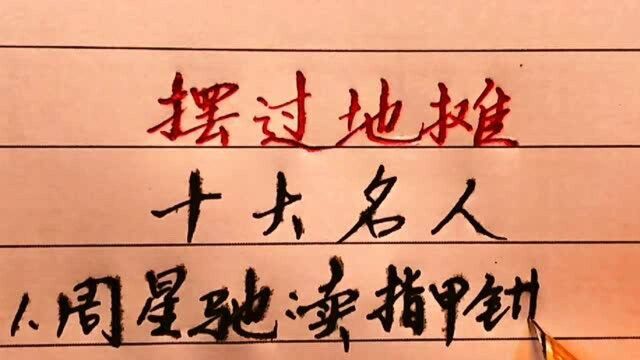 摆过地摊
十大名人
1、周星驰:卖指甲钳